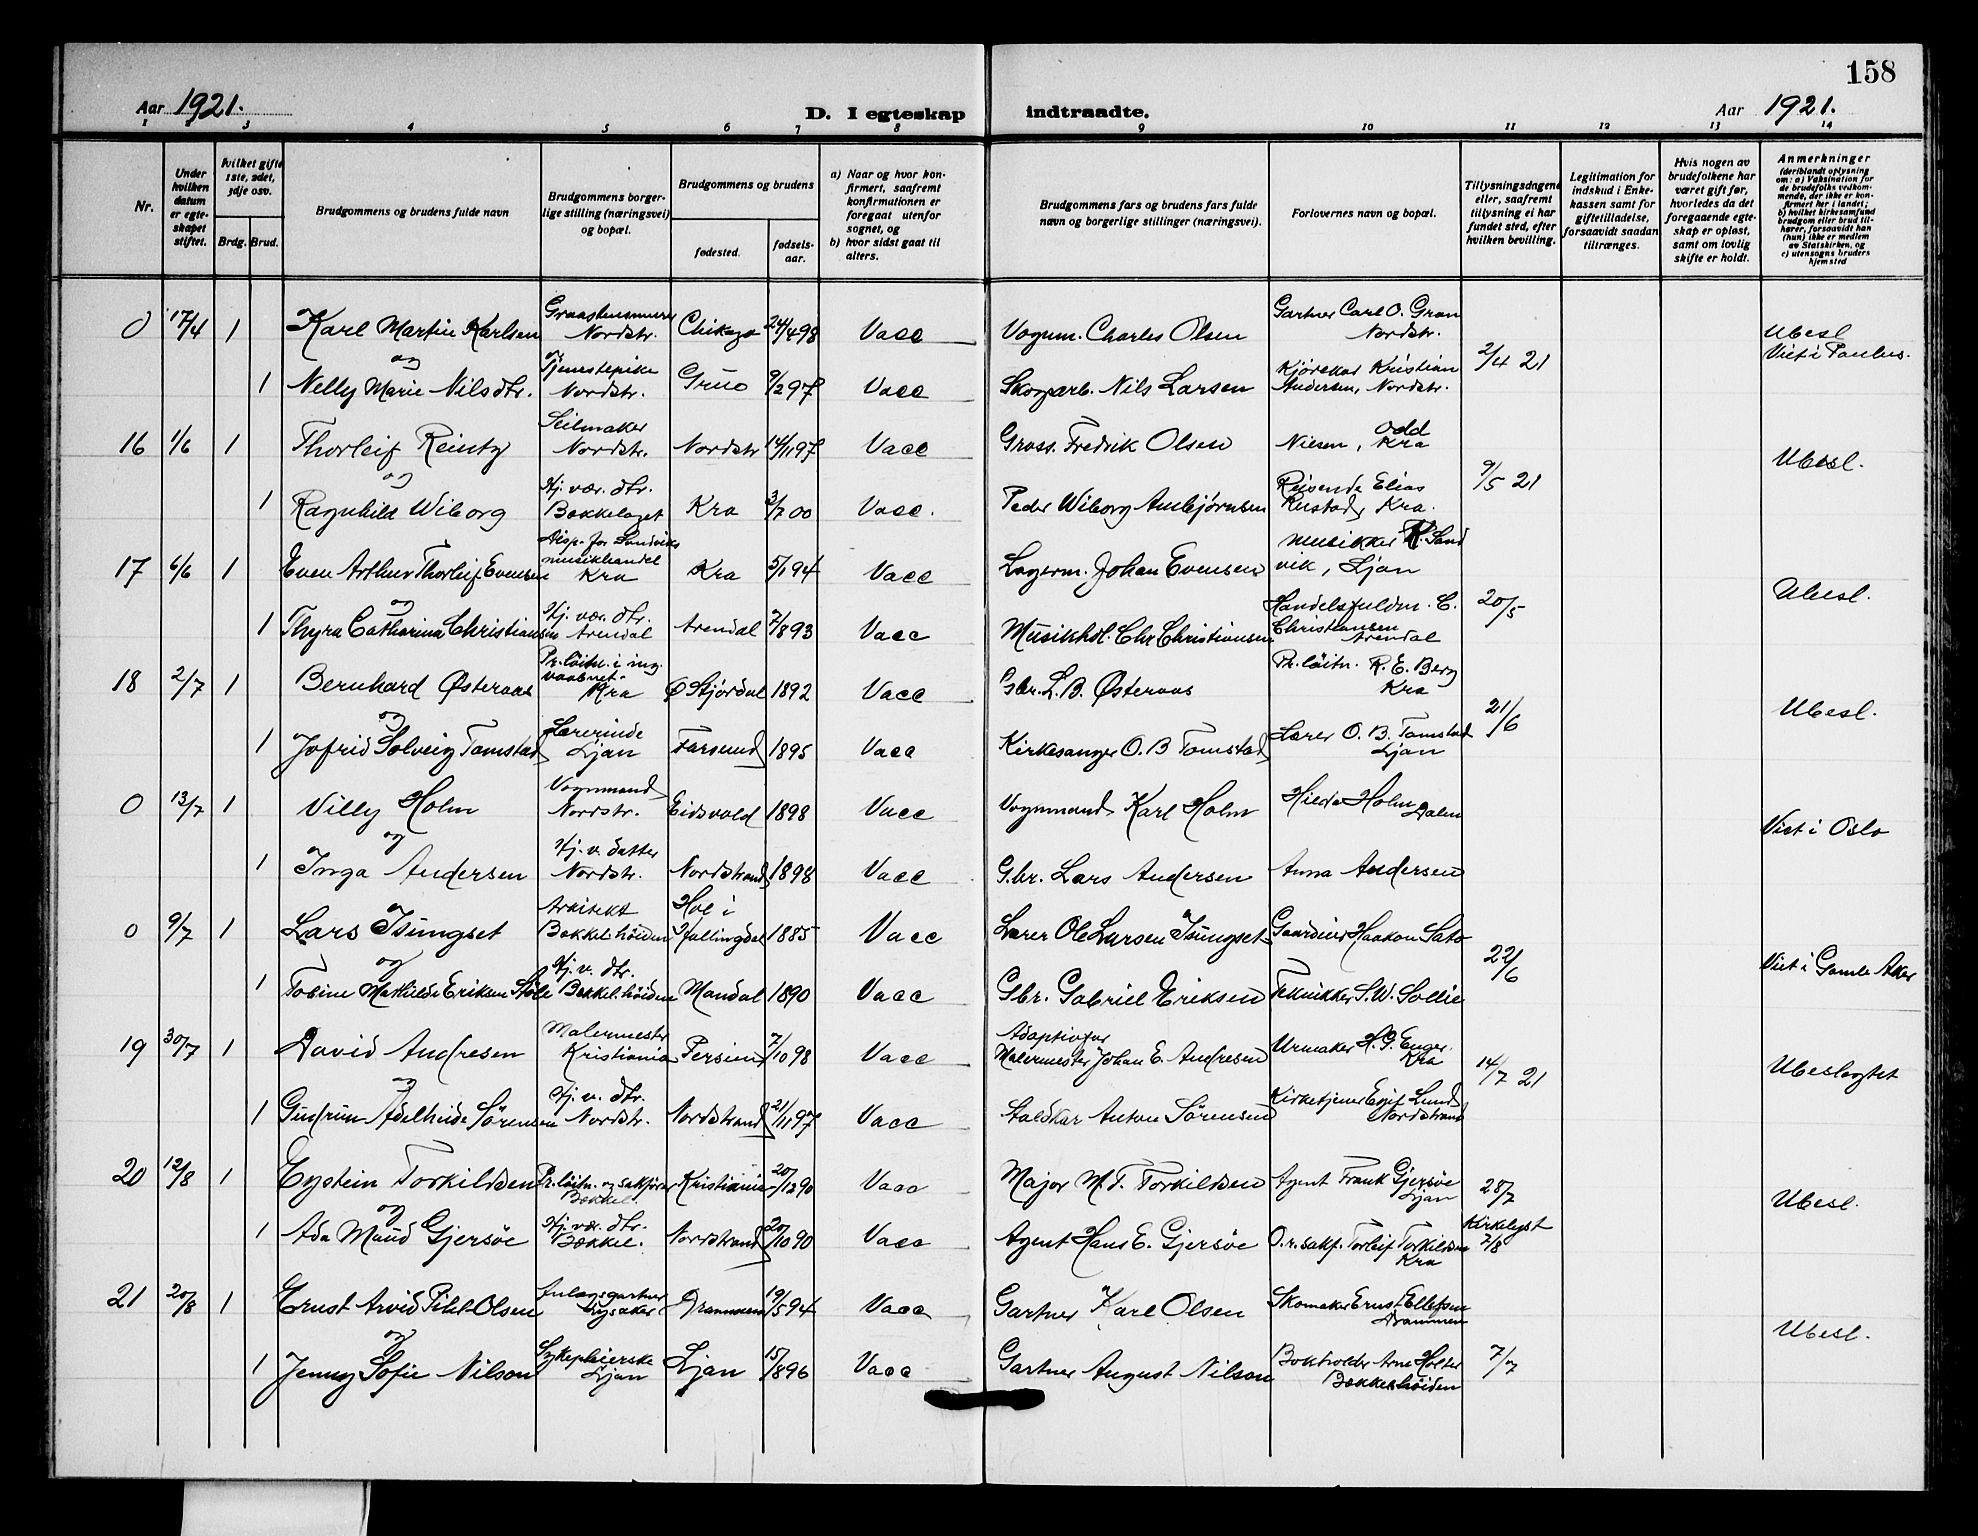 158
Aar 1921.
D. I egteskap indtraadte.
Aar 1921.
1 3 4 5 6 7 8 9 10 11 12 13 14
Nr.
Under hvilken datum er egteskapet stiftet.
hvilket gifte 1ste, 2det, 3dje osv.
Brdg. Brud.
Brudgommens og brudens fulde navn
Brudgommens borgerlige stilling (næringsvei) og bopæl.
Brudgommens og brudens
fødested.
fødselsaar.
a) Naar og hvor konfirmert, saafremt konfirmationen er foregaat utenfor sognet, og
b) hvor sidst gaat til alters.
Brudgommens fars og brudens fars fulde navn og borgerlige stillinger (næringsvei).
Forlovernes navn og bopæl.
Tillysningsdagene eller, saafremt tillysning ei har fundet sted, efter hvilken bevilling.
Legitimation for indskud i Enkekassen samt for giftetilladelse, forsaavidt saadan tiltrænges.
Hvis nogen av brudefolkene har været gift før, hvorledes da det foregaaende egteskap er opløst, samt om lovlig skifte er holdt.
Anmerkninger (deriblandt oplysning om: a) Vaksination for de brudefolks vedkommende, der ikke er konfirmert her i landet; b) hvilket kirkesamfund brudgom eller brud tilhører, forsaavidt han (hun) ikke er medlem av Statskirken, og c) utensogns bruders hjemsted
0 17/4 1 Karl Martin Karlsen Nordstr. Chikago 24/4 98 Vacc Vognm. Charles Olsen Gartner Carl O. Gran Nordstr. Ubesl Viet i Paulus.
og 2/4 21
1 Nelly Marie Nilsdtr. Tjenestepike Nordstr. Grue 9/2 97 Vacc Skogarb. Nils Larsen Kjørekar Kristian Andersen, Nordstr.
16 1/6 1 Thorleif Reintz Seilmaker Nordstr. Nordstr 14/11 97 Vacc Gross. Fredrik Olsen Odd Nilsen, Kra Ubesl.
og 9/5 21
1 Ragnhild Wiborg Hj. vær. dtr. Bækkelaget Kra 3/7 00 Vacc. Peder Wiborg Ambjørnsen Reisende Elias Rustad, Kra.
17 6/6 1 Even Arthur Thorleif Evensen Disp. for Sandviks musikhandel Kra Kra 5/1 94 Vacc Lagerm. Johan Evensen Musikker Sandvik, Ljan Ubesl.
og 20/5
1 Thyra Catharina Christiansen Hj. vær. dtr. Arendal Arendal 7/8 93 Vacc Musikhdl. Chr Christiansen Handelsfuldm. C. Christiansen Arendal
18 2/7 1 Bernhard Østeraas Pr.løitn. i ing. vaabnet. Kra Ø Stjørdal 1892 Vacc Gbr. L. B. Østeraas Pr. løitn. R. E. Berg Kra Ubesl.
og 21/6
1 Jofrid Solveig Tomstad Lærerinde Ljan Farsund 1895 Vacc Kirkesanger O. B Tomstad Lærer O. B. Tomstad Ljan
0 13/7 1 Villy Holm Vognmand Nordstr. Eidsvold 1898 Vacc Vognmand Karl Holm Hilda Holm Viet i Oslo
og
1 Inga Andersen Hj. v. datter Nordstr. Nordstrand 1898 Vacc G.br. Lars Andersen Anna Andersen
0 9/7 1 Lars Tsungset Arkitekt Bækkel. høiden Hol i Hallingdal 1885 Vacc Lærer Ole Larsen Tsungset Haakon Sato Viet i Gamle Aker
og 22/6
1 Tobine Mathilde Eriksen Støle Hj. v. dtr. Bækkel. høiden Mandal 1890 Vacc Gbr. Gabriel Eriksen Teknikker S. W. Sollie
19 30/7 1 David Andresen Malermester Kristiania Persien 7/10 98 Vacc Adoptivfar Malermester Johan E. Andresen Urmaker H. G. Enger. Kra Ubeslegtet
og 14/7 21
1 Gudrun Adelheide Sørensen Hj. v. dtr. Nordstr. Nordstrand 21/11 97 Vacc Staldkar Anton Sørensen Kirketjener Egif Lund Nordstrand
20 12/8 1 Eystein Torkildsen Pr. løitn. og sakfører Bækkel. Kristiania 20/12 90 Vacc Major M. T. Torkildsen Agent Frank Gjersøe Ljan 28/7 Ubesl.
og
1 Ada Maud Gjersøe Hj. vær. dtr. Bækkel. Nordstrand 20/10 90 Vacc Agent Hans E. Gjersøe O.r.sakf. Torleif Torkildsen Kra Kirkelyst 7/8
21 20/8 1 Ernst Arvid Pihl Olsen Anlægsgartner Lysaker Drammen 19/5 94 Vacc Gartner Karl Olsen Skomaker Ernst Ellefsen Drammen Ubesl.
og
1 Jenny Sofie Nilson Sykepleierske Ljan Ljan 15/8 96 Vacc Gartner August Nilson Bokholder Arne Holter Bækkelhøiden 7/7